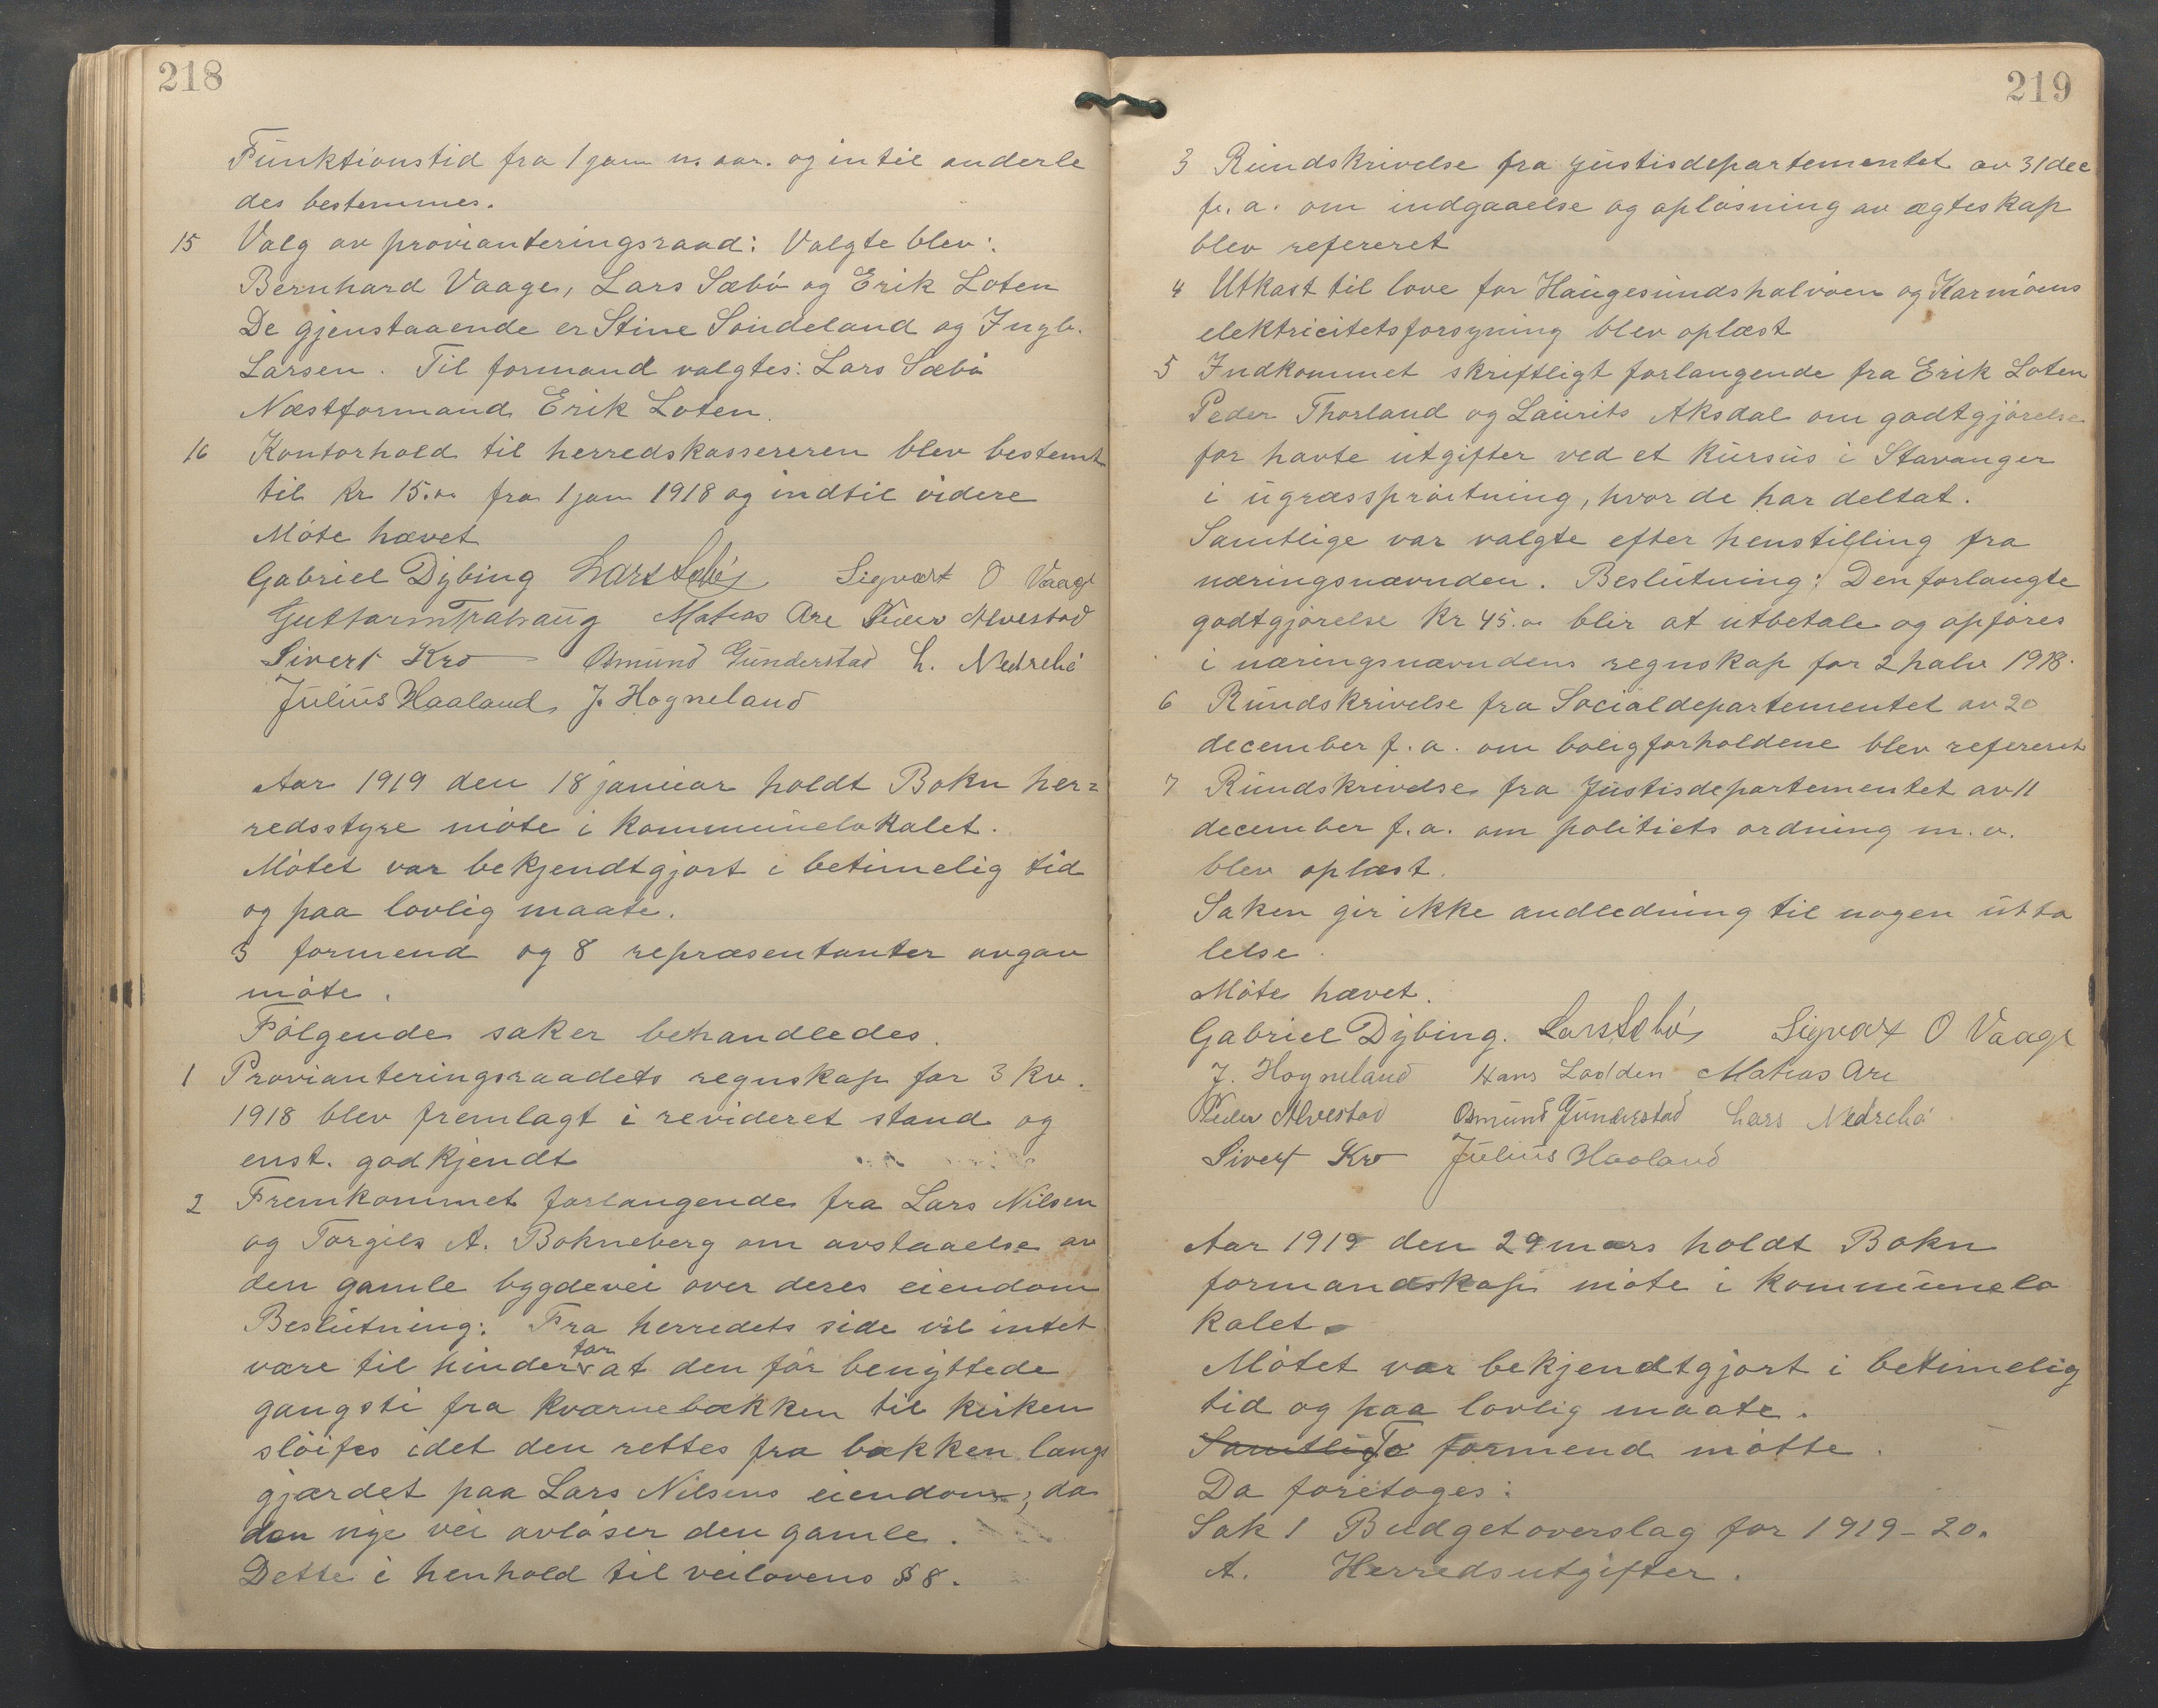 218
Funktionstid fra 1 jan n. aar. og intil anderle
des bestemmes.
15 Valg av provianteringsraad: Valgte blev:
Bernhard Vaage, Lars Sæbö og Erik Loten
De gjenstaaende er Stine Sundeland og Ingb.
Larsen. Til formand valgtes: Lars Sæbö
Næstformand Erik Loten.
16 Kontorhold til herredskassereren blev bestemt
til kr 15.00 fra 1 jan 1918 og indtil videre
Möte hævet
Gabriel Dÿbing Lars Sæbö Sigvart O Vaage
Guttorm Trahaug Matias Are Peder Alvestad
Sivert Kro Osmund Gunderstad L. Nedrebö
Julius Haaland J. Hogneland
Aar 1919 den 18 januar holdt Bokn her=
redsstyre möte i kommunelokalet.
Mötet var bekjendtgjort i betimelig tid
og paa lovlig maate.
3 formend og 8 repræsentanter avgav
möte.
Fölgende saker behandledes.
1 Provianteringsraadets regnskap for 3 kv.
1918 blev fremlagt i revideret stand og
enst. godkjendt
2 Fremkommet forlangende fra Lars Nilsen
og Torgils A. Bokneberg om avstaaelse av
den gamle bygdevei over deres eiendom
Beslutning: Fra herredets side vil intet
være til hinder for at den för benyttede
gangsti fra kværnebækken til kirken
slöifes idet den rettes fra bækken langs
gjærdet paa Lars Nilsens eiendom; da
den nye vei avlöser den gamle.
Dette i henhold til veilovens § 8.
219
3 Rundskrivelse fra Justisdepartementet av 31 dec
f. a. om indgaaelse og oplösning av ægteskap
blev refereret
4 Utkast til love for Haugesundshalvöen og Karmöens
elektricitetsforsyning blev oplæst
5 Indkommet skriftligt forlangende fra Erik Loten
Peder Thorland og Laurits Aksdal om godtgjörelse
for havte utgifter ved et kursus i Stavanger
i ugræsspröitning, hvor de har deltat.
Samtlige var valgte efter henstilling fra
næringsnævnden. Beslutning: Den forlangte
godtgjörelse kr 45.00 blir at utbetale og opföres
i næringsnævndens regnskap for 2 halv 1918.
6 Rundskrivelse fra Socialdepartementet av 20
december f. a. om boligforholdene blev refereret
7 Rundskrivelse fra Justisdepartementet av 11
december f. a. om politiets ordning m. v.
blev oplæst.
Saken gir ikke andledning til nogen utta
lelse.
Möte hævet.
Gabriel Dÿbing. Lars Sæbö Sigvart O Vaage
J. Hogneland Hans Lodden Matias Are
Peder Alvestad Osmund Gunderstad Lars Nedrebö.
Sivert Kro Julius Haaland
Aar 1919 den 29 mars holdt Bokn
formandskap möte i kommunelo
kalet.
Mötet var bekjendtgjort i betimelig
tid og paa lovlig maate.
Samtlige To formend mötte.
Da foretoges:
Sak 1 Budgetoverslag for 1919-20.
A. Herredsutgifter.